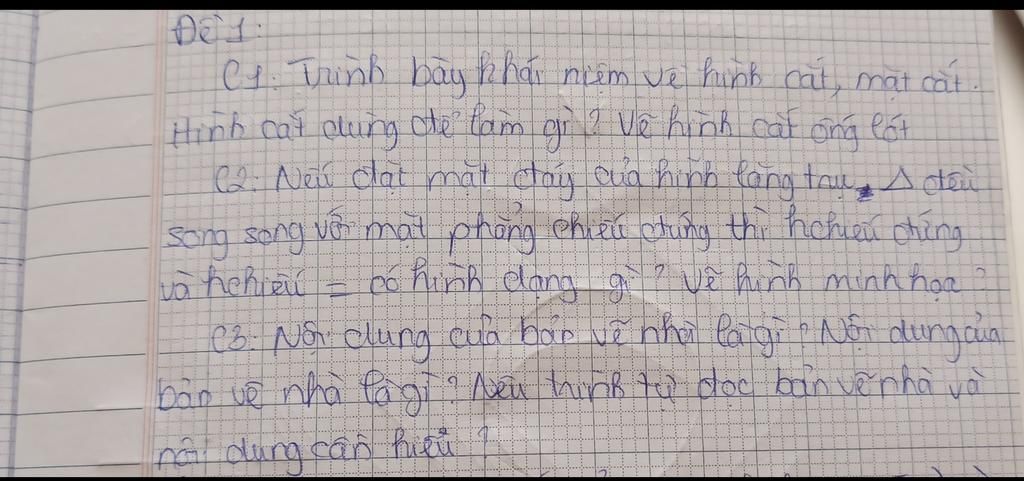 Đề 1:
C1: Trình bày khái niệm về hình cắt, mặt cắt.
Hình cắt dùng để làm gì? Vẽ hình cắt ống lót
C2: Nếu đặt mặt đáy của hình lăng trụ Δ đều
song song với mặt phẳng chiếu đứng thì hchiếu đứng
và hchiếu = có hình dạng gì? Vẽ hình minh họa?
C3: Nội dung của bản vẽ nhà là gì? Nội dung của
bản vẽ nhà là gì? Nêu trình tự đọc bản vẽ nhà và
nội dung cần hiểu?